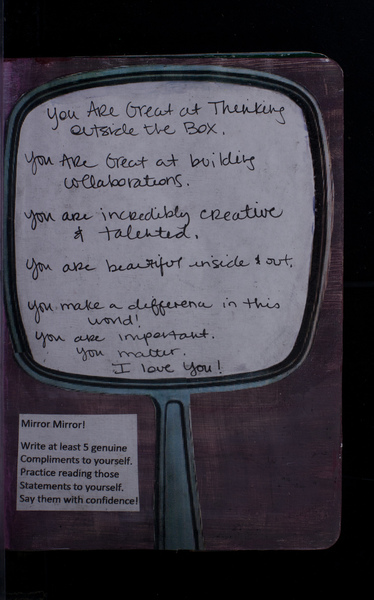 You Are Great at Thinking
outside the Box.
You Are Great at building
collaborations.
You are incredibly creative
& talented.
You are beautiful inside & out.
You make a difference in this
world!
You are important.
You matter.
I love You!
Mirror Mirror!
Write at least 5 genuine
Compliments to yourself.
Practice reading those
Statements to yourself.
Say them with confidence!